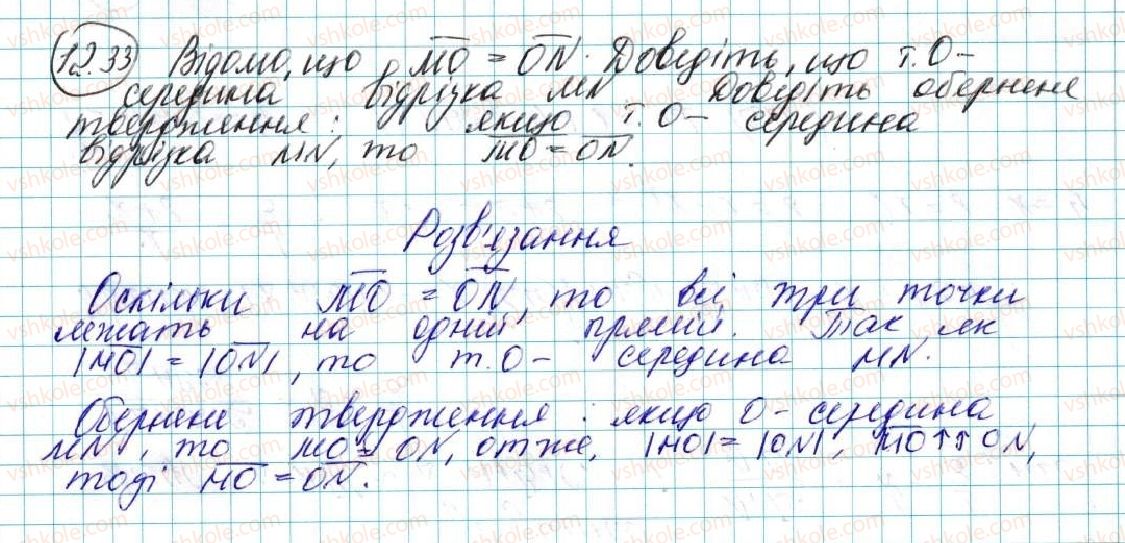 12.33 Відомо, що MO = ON. Доведіть, що т. O –
середина відрізка MN Доведіть обернене
твердження: якщо т. O – середина
відрізка MN, то MO = ON.
Розв'язання
Оскільки MO = ON, то всі три точки
лежать на одній прямій. Так як
|MO| = |ON|, то т. O – середина MN.
Обернене твердження: якщо O – середина
MN, то MO = ON, отже, |MO| = |ON|, MO↑↑ON,
тоді MO = ON.